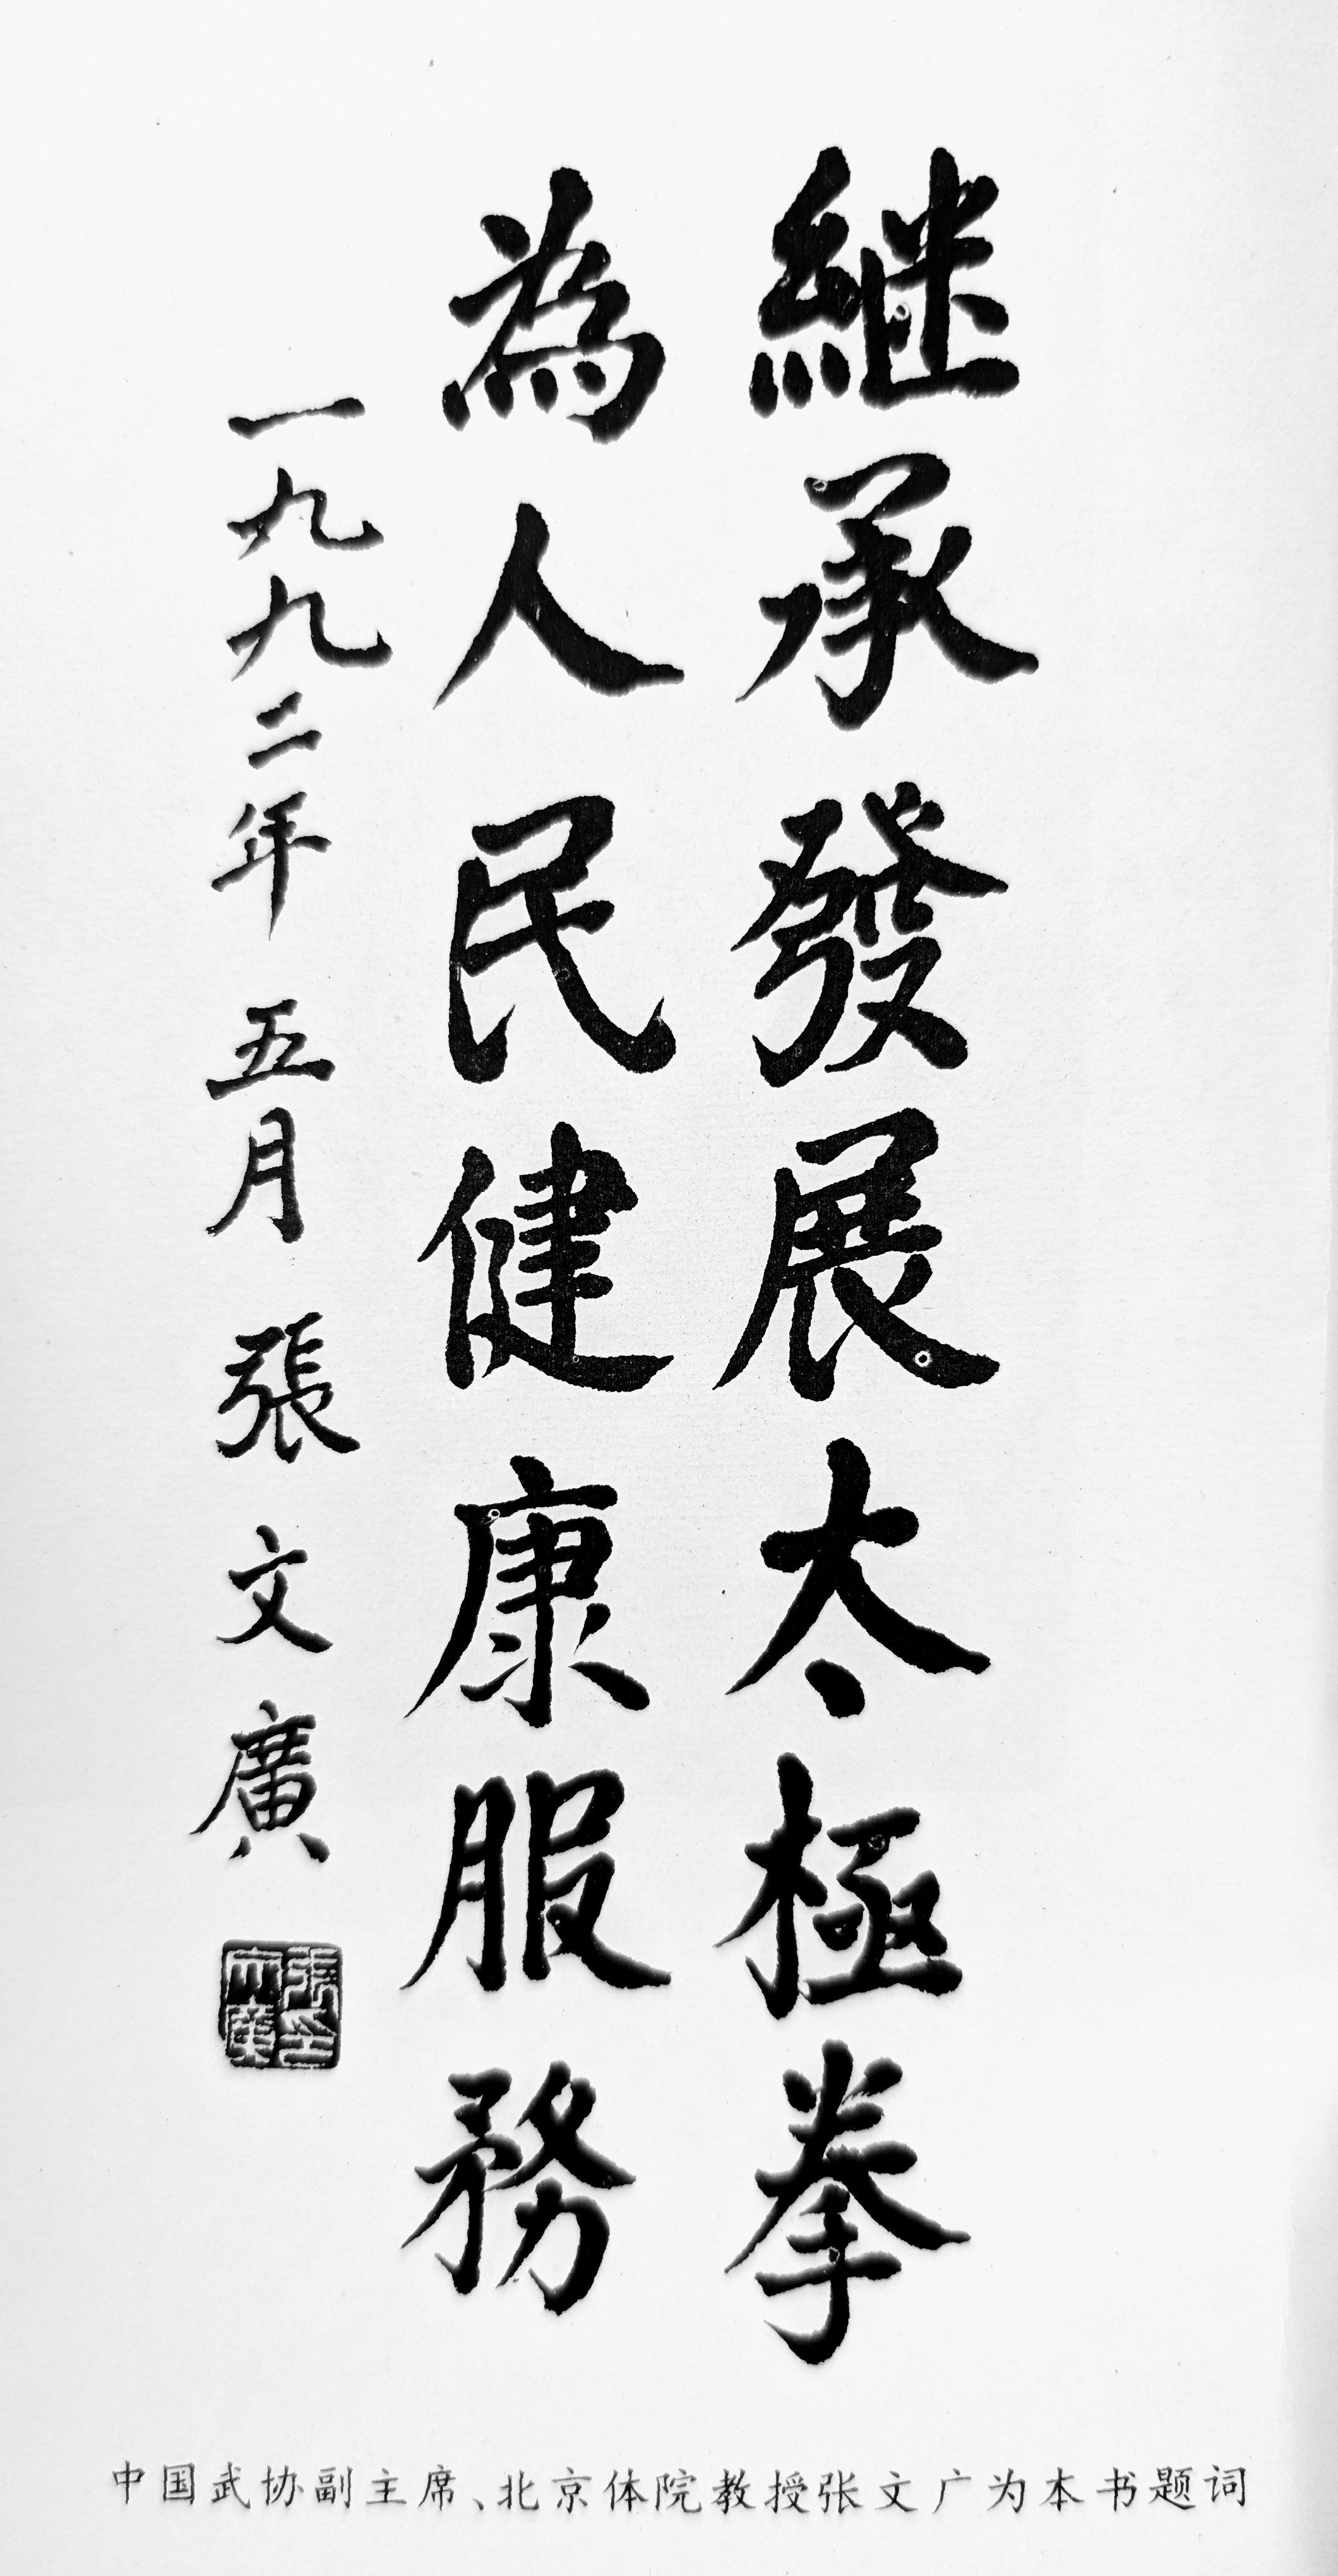 継承發展太極拳
為人民健康服務
一九九二年 五月 張文廣
中国武协副主席、北京体院教授张文广为本书题词